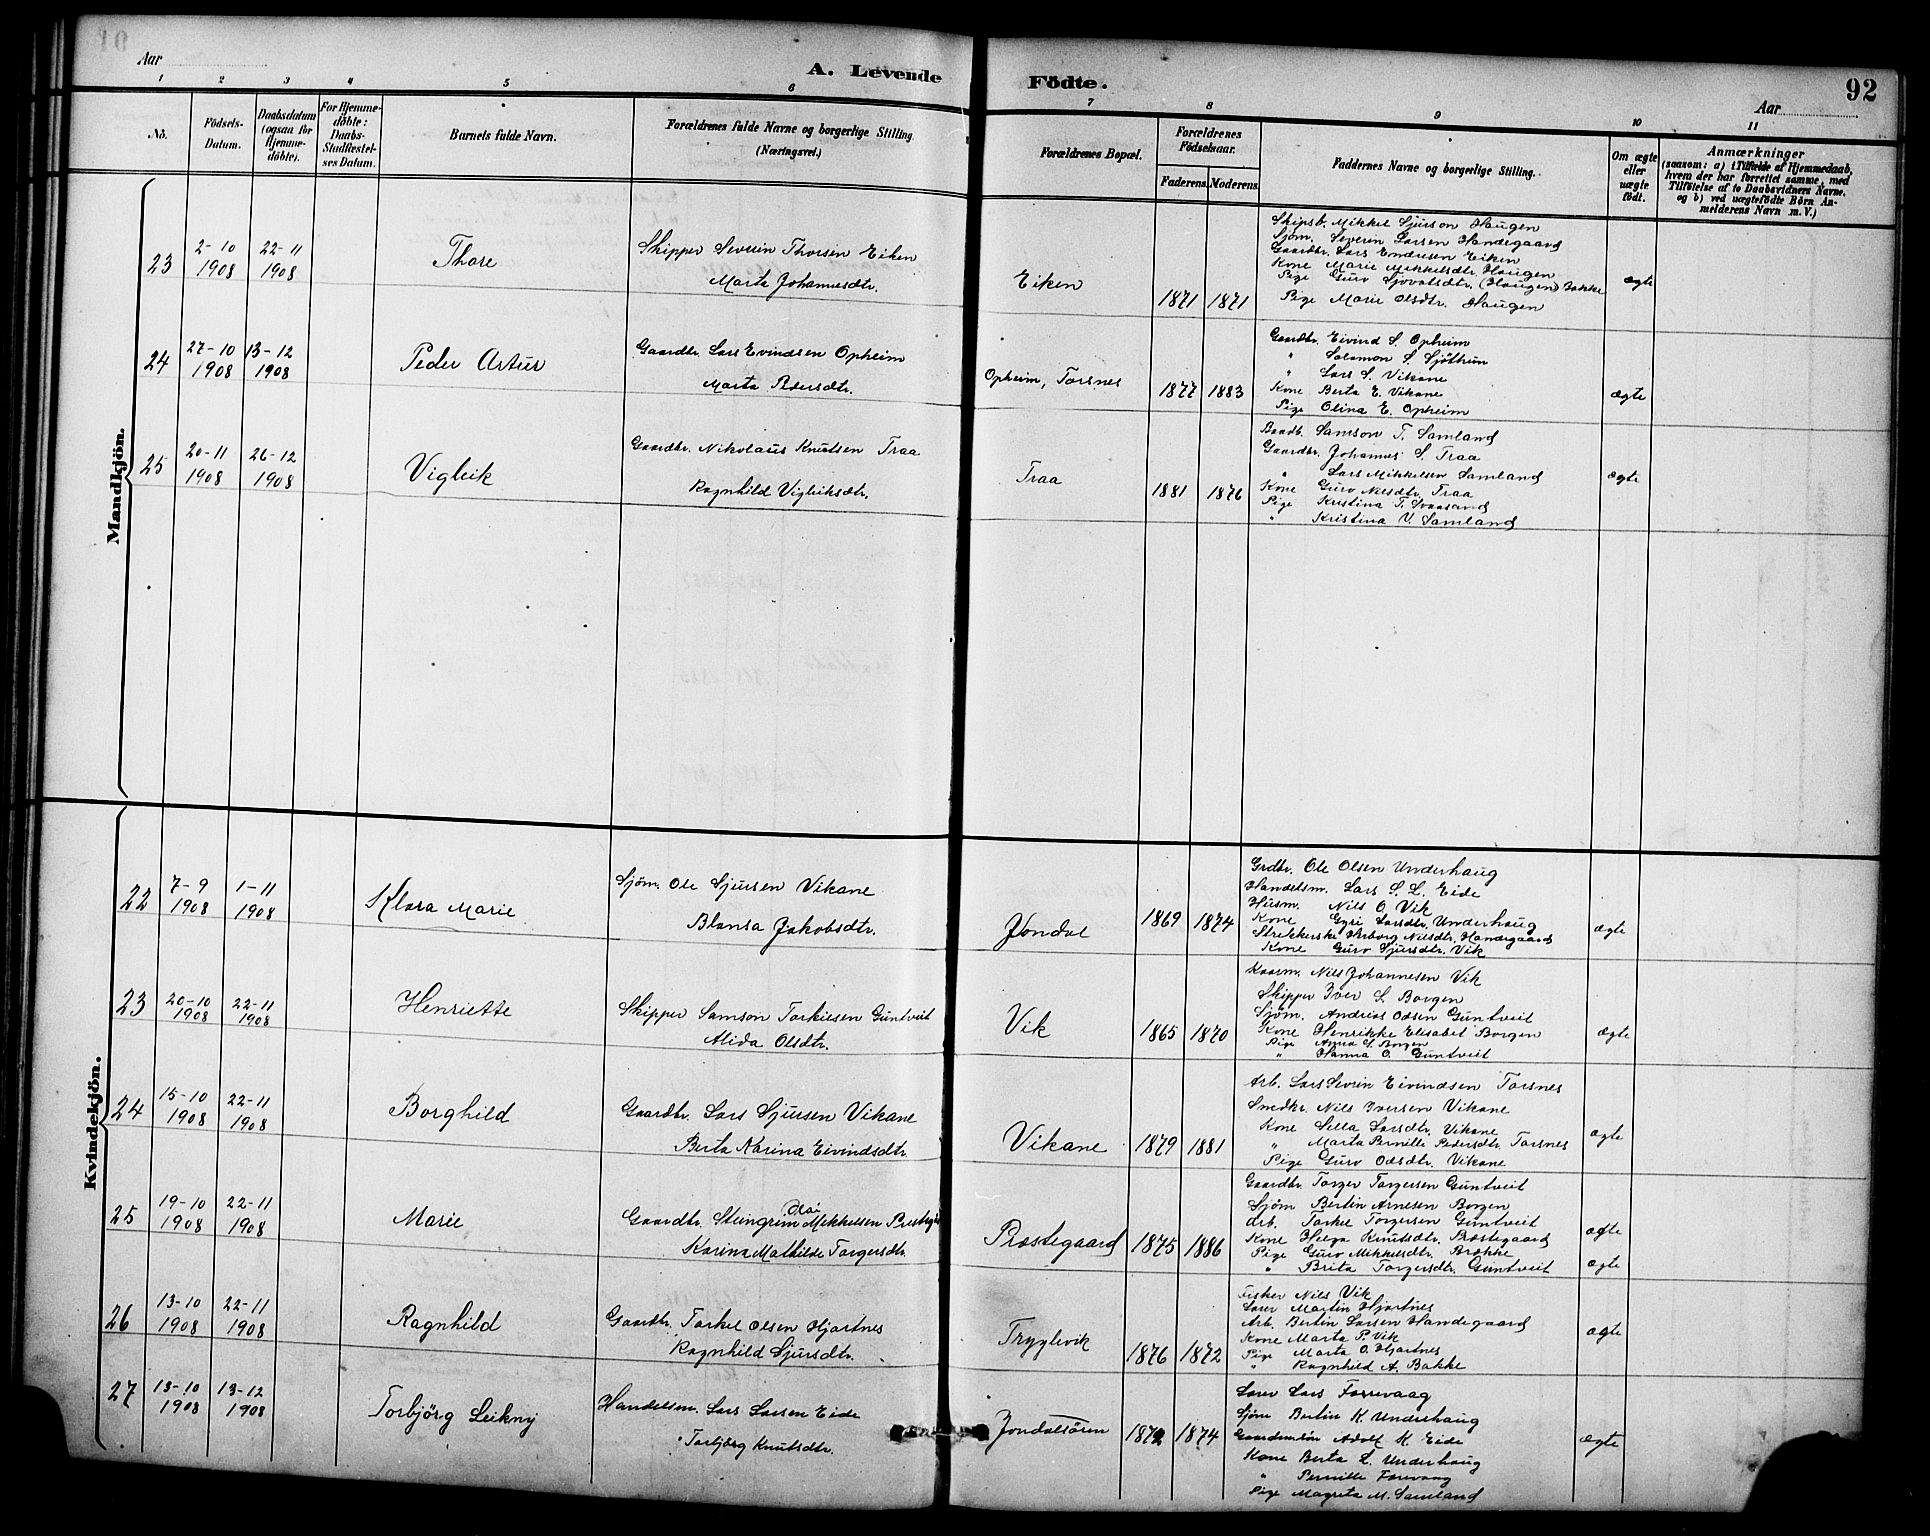 Aar
A. Levende
Födte.
Aar
92
1 2 3 4 5 6 7 8 9 10 11
No.
Födsels-
Datum.
Daabsdatum
(ogsaa for
Hjemme-
döbte).
For Hjemme-
döbte:
Daabs-
Stadfæstel-
ses Datum.
Barnets fulde Navn.
Forældrenes fulde Navne og borgerlige Stilling.
(Næringsvei.)
Forældrenes Bopæl.
Forældrenes
Födselsaar.
Faderens. Moderens.
Faddernes Navne og borgerlige Stilling.
Om ægte
eller
uægte
födt.
Anmærkninger
(saasom: a) i Tilfælde af Hjemmedaab,
hvem der har forrettet samme, med
Tilföielse af to Daabsvidners Navne.
og b) ved uægtefödte Börn An-
melderens Navn m. V.)
Mandkjön.
23
2-10
1908
22-11
1908
Thore
Skipper Severin Thorsen Eiken
Marta Johannesdtr.
Eiken
1871 1871
Skipsb. Mikkel Sjurson Haugen
Sjöm. Severin Larsen Handegaard
Gaardbr. Lars Endresen Eiken
Kone Marie Mikkelsdtr. Haugen
Pige Guro Sjovatsdtr. (Haugen) Bakke
Pige Marie Olsdtr. Haugen
ægte
24
27-10
1908
13-12
1908
Peder Artur
Gaardbr. Lars Evindsen Opheim
Marta Pedersdtr.
Opheim, Torsnes
1877 1883
Gaardbr. Eivind S. Opheim
" Salamon S. Sjöthun
" Lars S. Vikane
Kone Berta E. Vikane
Pige Olina E. Opheim
ægte
25
20-11
1908
26-12
1908
Vigleik
Gaardbr. Nikolaus Knutsen Traa
Ragnhild Vigleiksdtr.
Traa
1881 1876
Baadb. Samson T. Samland
Gaardbr. Johannes S. Traa
" Lars Mikkelsen Samland
Kone Guro Nilsdtr. Traa
Pige Kristina T. Svaasand
" Kristina V. Samland
ægte
Kvindekjön.
22
7-9
1908
1-11
1908
Klara Marie
Sjöm. Ole Sjursen Vikane
Blansa Jakobsdtr.
Jondal
1869 1874
Grdbr. Ole Olsen Underhaug
Handelsm. Lars S. L. Eide
Husm. Nils O. Vik
Kone Gyri Larsdtr. Underhaug
Strikkerske Herborg Nilsdtr. Handegaard
Kone Guro Sjursdtr. Vik
ægte
23
20-10
1908
22-11
1908
Henriette
Skipper Samson Torkilsen Guntveit
Alida Olsdtr.
Vik
1865 1870
Kaarm. Nils Johannesen Vik
Skipper Iver S. Borgen
Sjöm. Andrias Odsen Guntveit
Kone Henrikke Elisabet Borgen
Pige Anna S. Borgen
" Hanna O. Guntveit
ægte
24
15-10
1908
22-11
1908
Borghild
Gaardbr. Lars Sjursen Vikane
Berta Karina Eivindsdtr.
Vikane
1879 1881
Arb. Lars Sevrin Eivindsen Torsnes
Smedkr. Nils Iversen Vikane
Kone Sella Larsdtr. Vikane
" Marta Pernille Pedersdtr. Torsnes
Pige Guro Odsdtr. Vikane
ægte
25
19-10
1908
22-11
1908
Marie
Gaardbr. Steingrim Mikkelsen
Karina Mathilde Torgersdtr.
Præstegaard
1875 1886
Gaardbr. Torger Torgersen Guntveit
Sjöm Bertin Arnesen Borgen
Arb. Torkel Torgersen Guntveit
Kone Helga Knutsdtr. Præstegaard
Pige Guro Mikkelsdtr. Brække
" Brita Torgersdtr. Guntveit
ægte
ægte
26
13-10
1908
22-11
1908
Ragnhild
Gaardbr. Torkel Olsen Hjartnes
Ragnhild Sjursdtr.
Tryglevik
1876 1872
Fisker Nils Vik
Lærer Martin Hjartnes
Arb. Bertin Larsen Handegaard
Kone Marta P. Vik
Pige Marta O. Hjartnes
" Ragnhild A. Bakke
ægte
27
13-10
1908
13-12
1908
Torbjörg Leikny
Handelsm. Lars Larsen Eide
Torbjörg Knutsdtr.
Jondalsören
1872 1874
Lærer Lars Forrevaag
Sjöm Bertin K. Underhaug
Adolf K. Eide
Kone Berta L. Underhaug
" Pernille Forevaag
Pige Magreta M. Samland
ægte